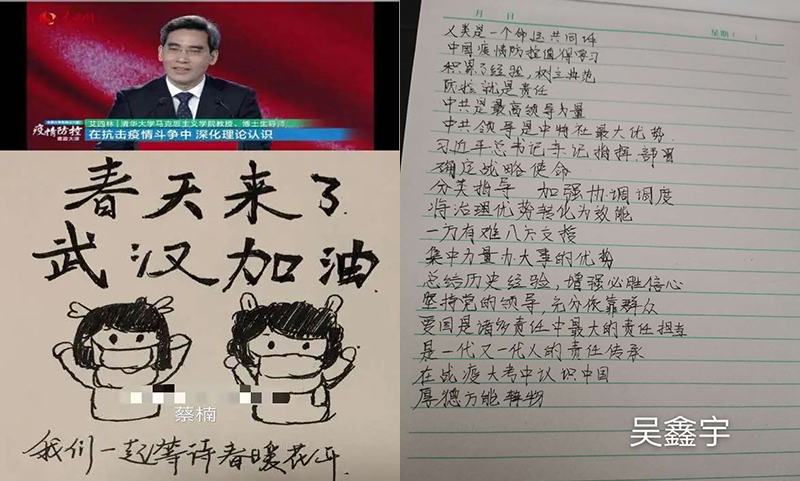 人民网
疫情防控
思政大课
艾四林|清华大学马克思主义学院教授、博士生导师
在抗击疫情斗争中 深化理论认识
春天来了
武汉加油
蔡楠
我们一起等待春暖花开
月 日
星期( )
人类是一个命运共同体
中国疫情防控值得学习
积累了经验,树立典范
防控就是责任
中共是最高领导力量
中共领导是中特社最大优势
习近平总书记亲记指挥部署
确定战略使命
分类指导 加强协调调度
将治理优势转化为效能
一方有难八方支援
集中力量办大事的优势
总结历史经验,增强必胜信心
坚持党的领导,充分依靠群众
爱国是诸多责任中最大的责任担当
是一代又一代人的责任传承
在战疫大考中认识中国
厚德方能载物
吴鑫宇